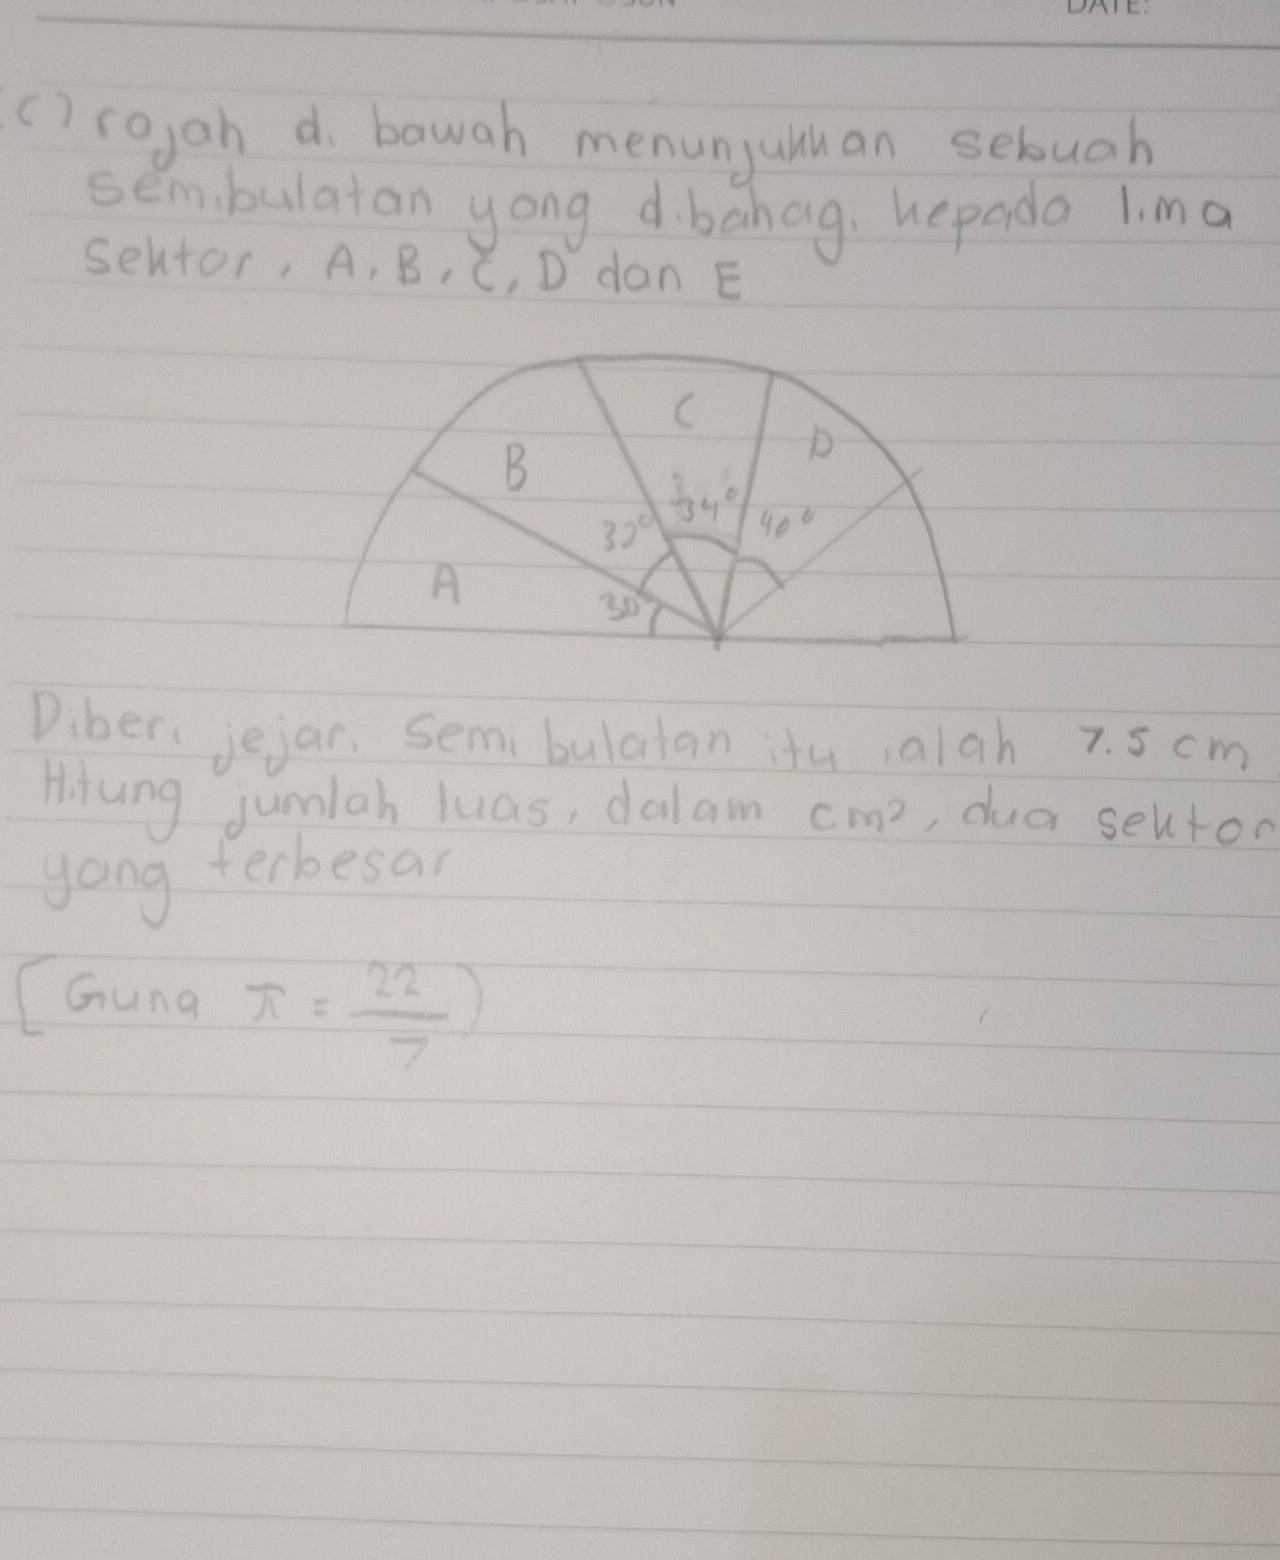 DATE:
c) rajah di bawah menunjukkan sebuah
semibulatan yang dibahagi kepada lima
sektor, A, B, C, D dan E
C
D
B
34°
40°
A
30°
Diberi jejari semi bulatan itu ialah 7.5 cm
Hitung jumlah luas, dalam cm², dua sektor
yang terbesar
[Guna π = 22/7)